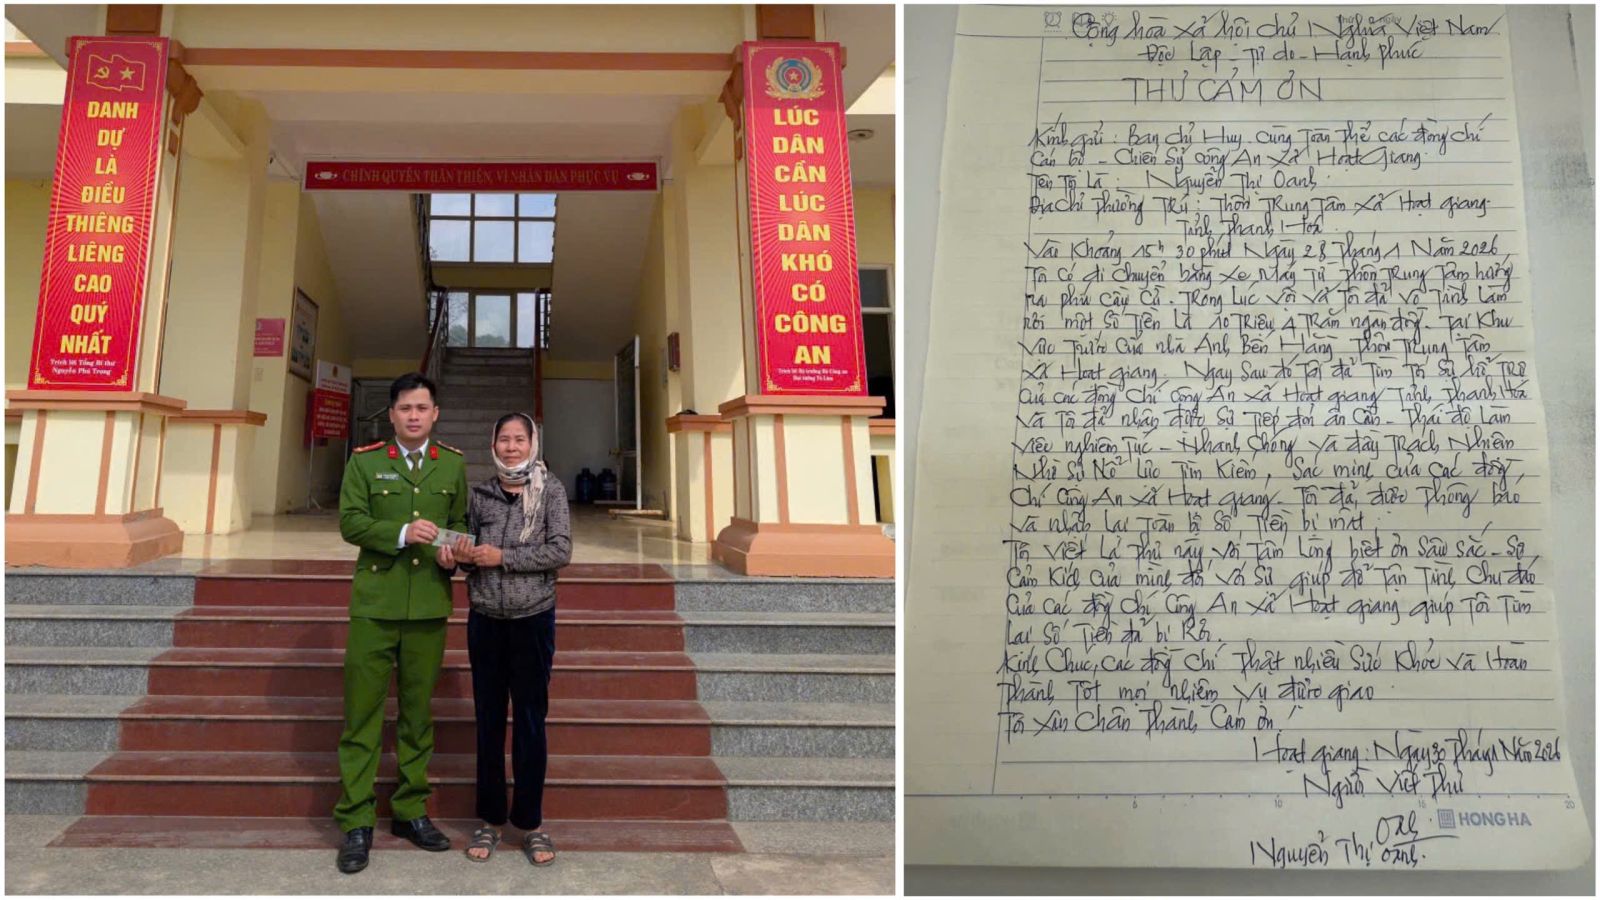 DANH
DỰ
LÀ
ĐIỀU
THIÊNG
LIÊNG
CAO
QUÝ
NHẤT
Trích lời Tổng Bí thư
Nguyễn Phú Trọng
CHÍNH QUYỀN THÂN THIỆN, VÌ NHÂN DÂN PHỤC VỤ
LÚC
DÂN
CẦN
LÚC
DÂN
KHÓ
CÓ
CÔNG
AN
Trích lời Bộ trưởng Bộ Công an
Đại tướng Tô Lâm
Cộng hòa xã hội chủ Nghĩa Việt Nam
Độc Lập - Tự do - Hạnh phúc
THƯ CẢM ƠN
Kính gửi: Ban chỉ Huy cùng Toàn Thể các đồng chí
Cán bộ - Chiến Sỹ công An xã Hoạt Giang.
Tên Tôi Là: Nguyễn Thị Oanh.
Địa chỉ Thường Trú: Thôn Trung Tâm xã Hoạt giang-
Tỉnh Thanh Hóa.
Vào Khoảng 15h 30 phút Ngày 28 Tháng 1 Năm 2026
Tôi có di chuyển bằng xe máy Từ Thôn Trung Tâm hướng
ra phía cầu Cừ. Trong Lúc vội vã Tôi đã vô Tình Làm
rơi một số Tiền Là 10 Triệu 4 Trăm ngàn đồng. Tại Khu
vực Trước cửa nhà Anh Bên Hằng Thôn Trung Tâm
xã Hoạt giang. Ngay Sau đó Tôi đã Tìm Tới Sự hỗ Trợ
Của các đồng Chí công An xã Hoạt giang Tỉnh Thanh Hóa
Và Tôi đã nhận được Sự Tiếp đón ân Cần - Thái độ Làm
việc nghiêm Túc - Nhanh Chóng và đầy Trách Nhiệm
Nhờ Sự Nỗ Lực Tìm Kiếm, Xác minh của các đồng
Chí Công An xã Hoạt giang. Tôi đã được Thông báo
và nhận Lại Toàn bộ Số Tiền bị mất.
Tôi viết Lá Thư này với Tấm Lòng biết ơn Sâu Sắc - Sự
Cảm Kích Của mình đối với Sự giúp đỡ Tận Tình, Chu đáo
Của các đồng chí Công An xã Hoạt giang giúp Tôi Tìm
Lại Số Tiền đã bị Rơi.
Kính Chúc các đồng Chí Thật nhiều Sức Khỏe và Hoàn
Thành Tốt mọi nhiệm vụ được giao.
Tôi xin Chân Thành Cảm ơn!
Hoạt giang: Ngày 30 Tháng 1 Năm 2026
Người Viết Thư
Oanh
Nguyễn Thị Oanh.
6 10 16 20
HONG HA